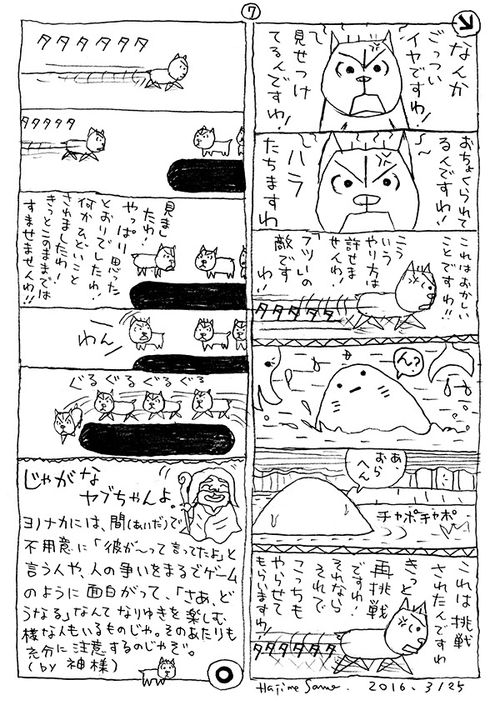 7
なんか
ごっつい
イヤですわ!
見せつけ
てるんですわ!
おちょくられて
るんですわ!
ハラ
たちますわ
これはおかしい
ことですわ!!
こう
いう
やり方は
許せま
せんわ!
フツいの
敵です
わ!
タタタタタ
んっ?
あ
おら
へん
チャポチャポ
これは挑戦
されたんですわ
きっと
再挑戦
ですわ!
それなら
それで
こっちも
やらせて
もらいますわ!
タタタタタタ
Hajime Same. 2016.3/25
タタタタタタ
タタタタタ
見まし
たわ!
やっぱり思った
とおりでしたわ!
何かひどいこと
されましたわ!
きっとこのままでは
すませませんわ!!
わん
ぐるぐるぐるぐる
じゃがな
ヤブちゃんよ。
ヨノナカには、間(あいだ)で
不用意に「彼が〜って言ってたよ」と
言う人や、人の争いをまるでゲーム
のように面白がって、「さあ、ど
うなる」なんてなりゆきを楽しむ
様な人もいるものじゃ。そのあたりも
充分に注意するのじゃぞ。
(by 神様)